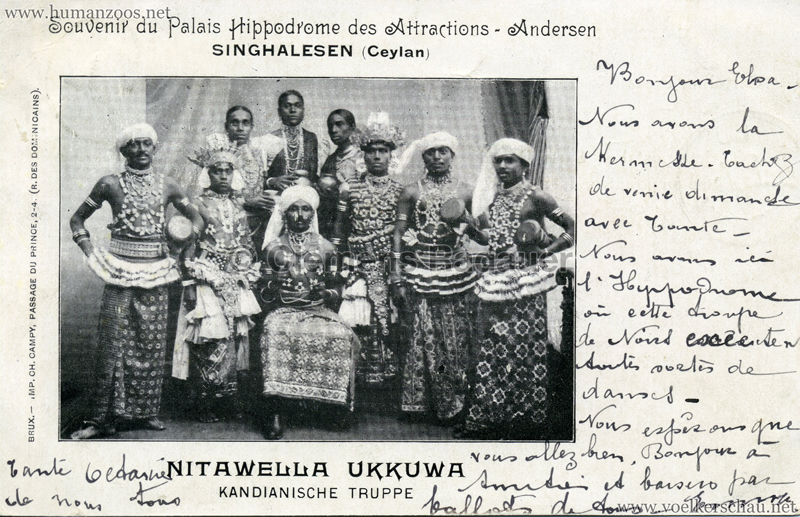 © www.humanzoos.net
Souvenir du Palais Hippodrome des Attractions - Andersen
SINGHALESEN (Ceylan)
BRUX. — IMP. CH. CAMPY, PASSAGE DU PRINCE, 2-4. (R. DES DOMINICAINS).
© Clemens Radauer
Bonjour Elsa -
Nous avons la
Kermesse. Tachez
de venir dimanche
avec Tante -
Nous avons ici
l'Hyppodrome
où cette troupe
de Noirs executent
toutes sortes de
danses -
Nous espérons que
vous allez bien. Bonjour à
Amitiés et baisers par
ballots de tous
Tante
de nous tous
NITAWELLA UKKUWA
KANDIANISCHE TRUPPE
© www.voelkerschau.net